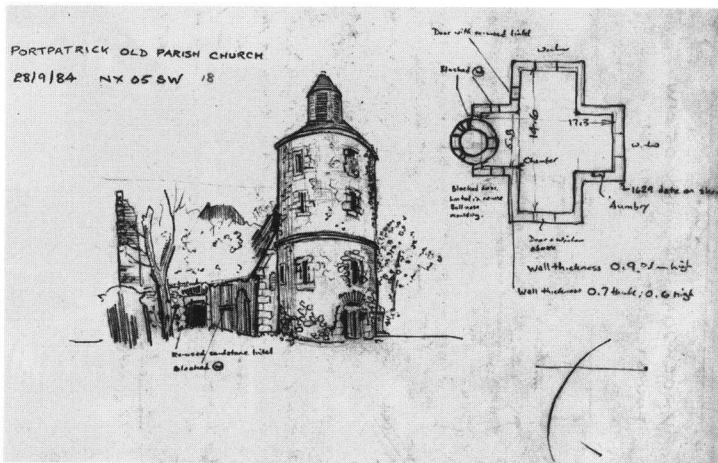 PORTPATRICK OLD PARISH CHURCH
28/9/84 NX 05 SW 18
Door with re-used lintel
Window
Blocked W
5.8
14.6
17.3
Chamfer
Blocked door
Bull nose
moulding.
1629 date on
Aumbry
Door & window
above
Wall thickness 0.9
high
Wall thickness 0.7 thick; 0.6 high
Re-used sandstone lintel
Blocked W